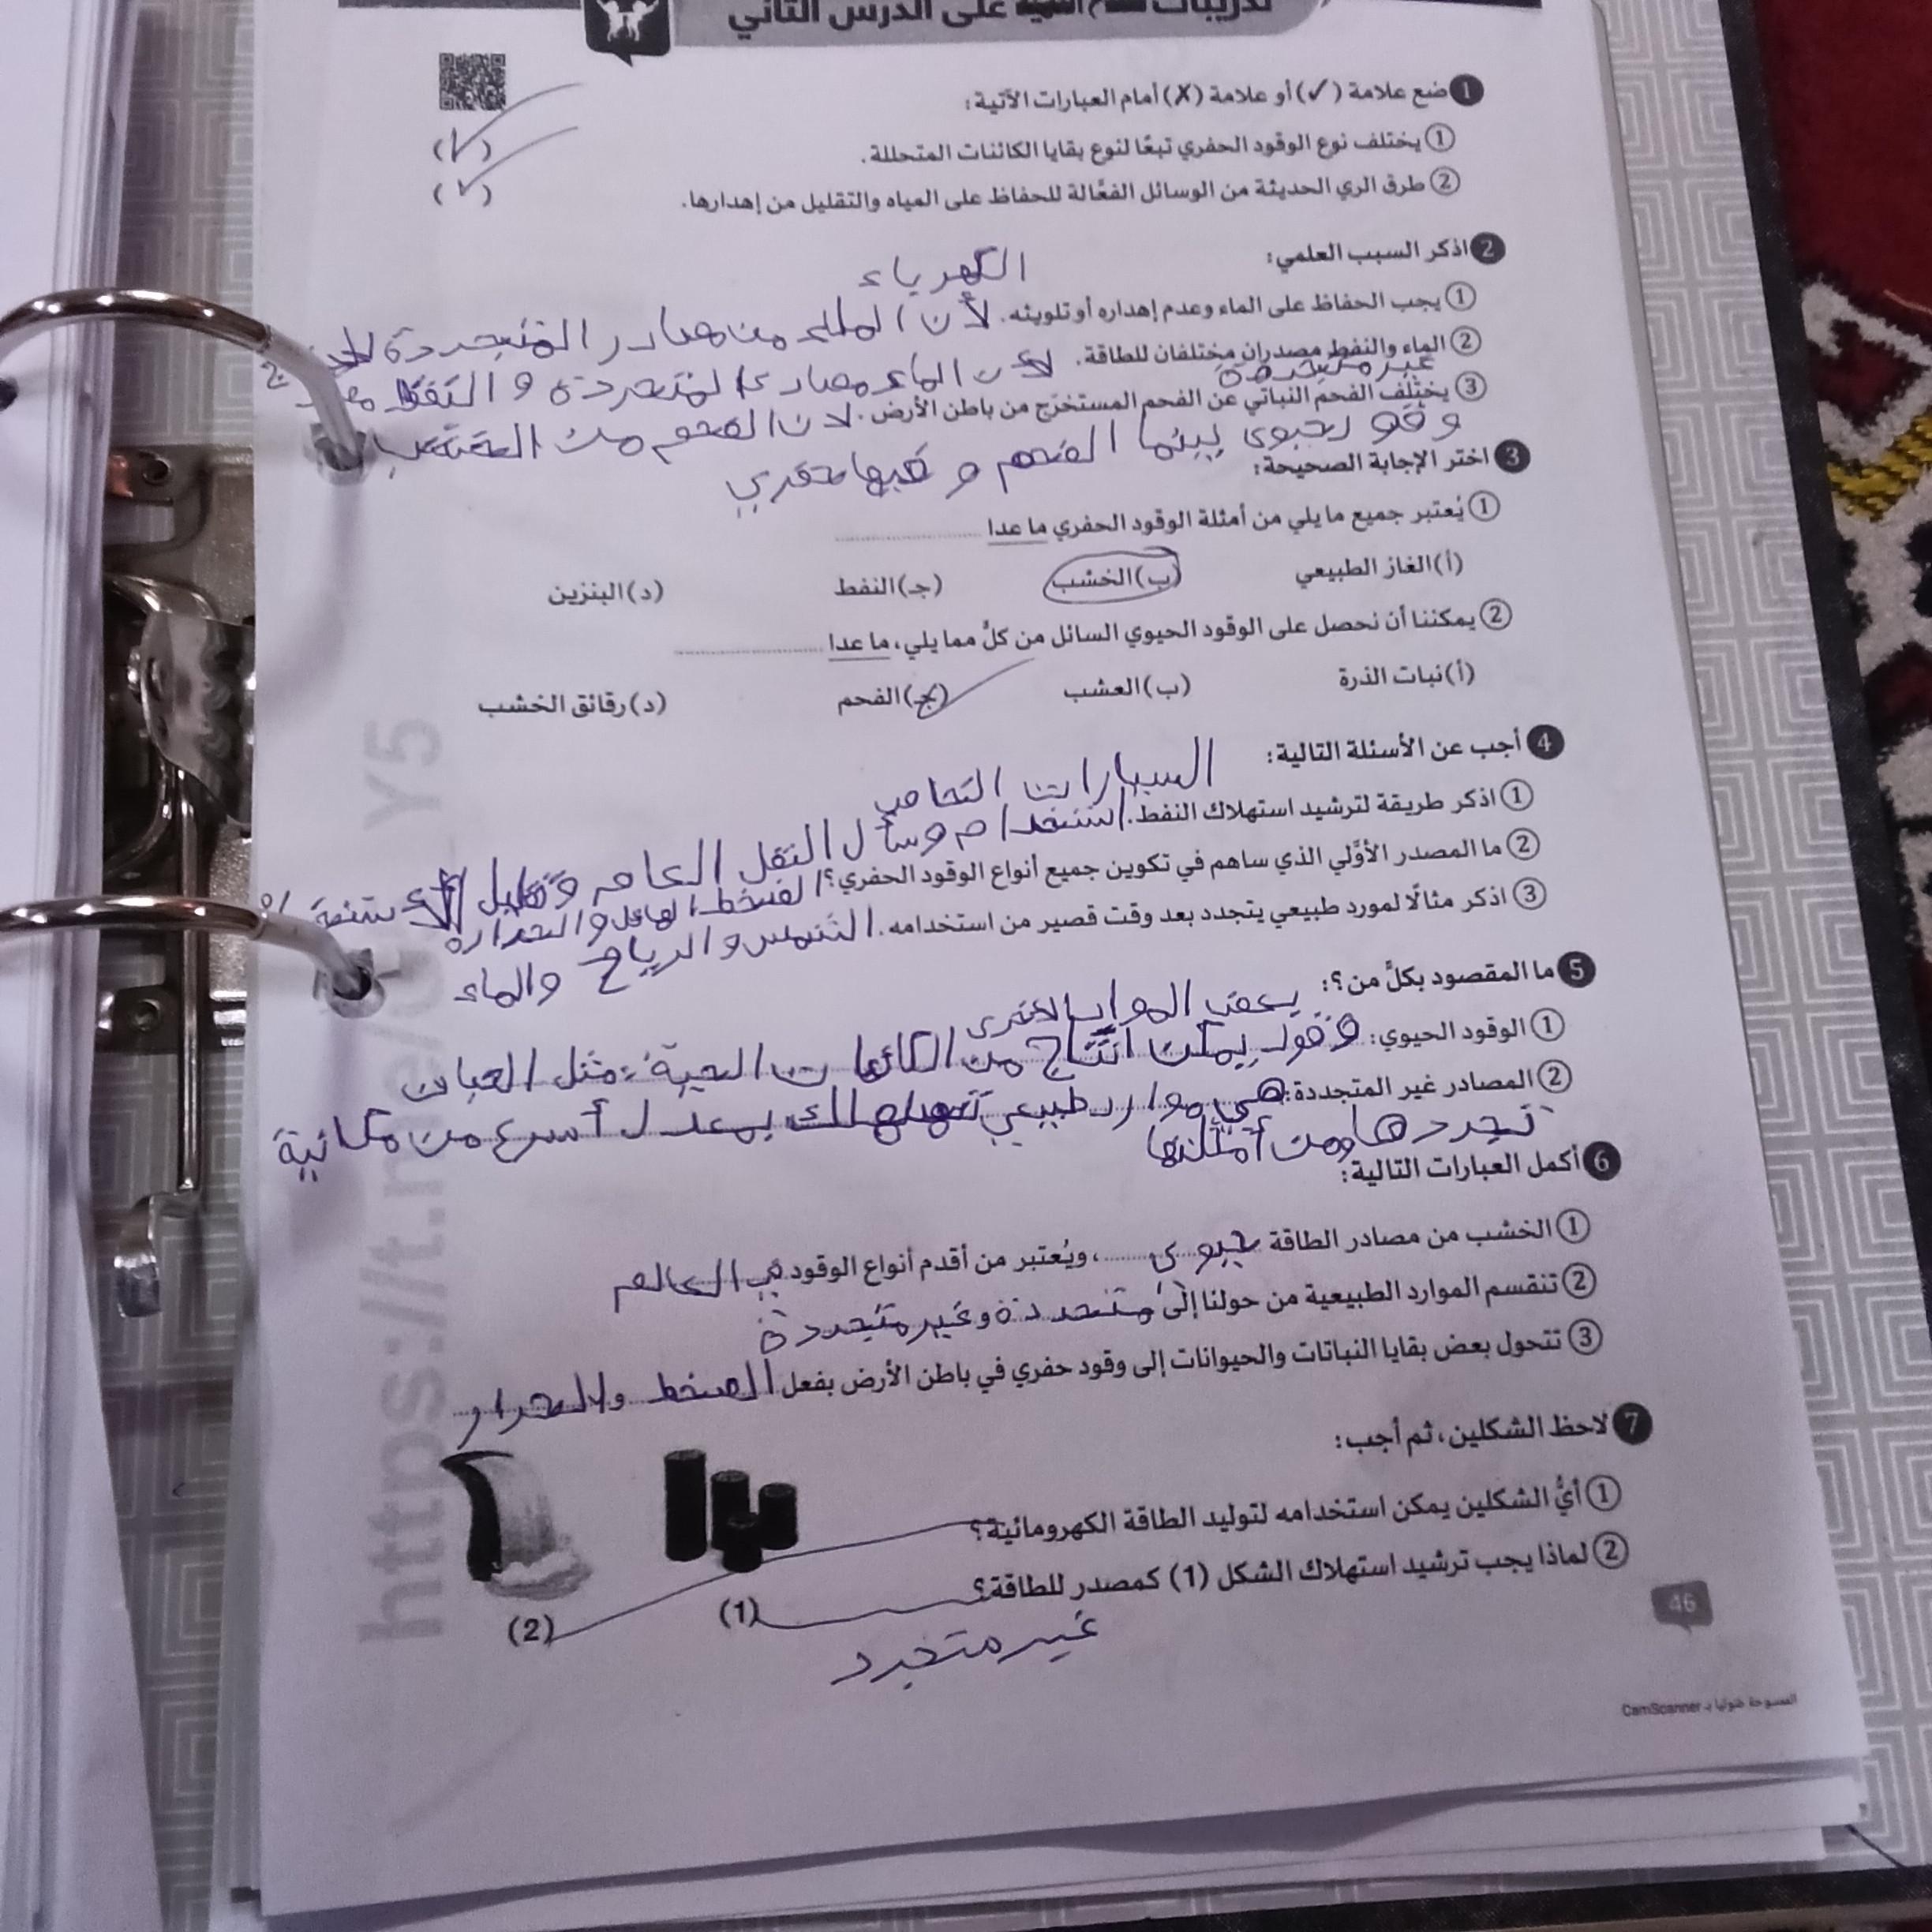 تدريبات سلاح التلميذ على الدرس الثاني
1 ضع علامة (✓) أو علامة (✗) أمام العبارات الآتية:
① يختلف نوع الوقود الحفري تبعًا لنوع بقايا الكائنات المتحللة. (✓)
② طرق الري الحديثة من الوسائل الفعَّالة للحفاظ على المياه والتقليل من إهدارها. (✓)
2 اذكر السبب العلمي:
الكهرباء
① يجب الحفاظ على الماء وعدم إهداره أو تلويثه. لأن الماء من مصادر المتجددة
② الماء والنفط مصدران مختلفان للطاقة. لأن الماء مصادر المتجددة و النفط
غير متجددة
③ يختلف الفحم النباتي عن الفحم المستخرَج من باطن الأرض. لان الفحم من الخشب
وقود حيوى بينما الفحم حفري
3 اختر الإجابة الصحيحة:
① يُعتبر جميع ما يلي من أمثلة الوقود الحفري ما عدا
(أ) الغاز الطبيعي (ب) الخشب (جـ) النفط (د) البنزين
② يمكننا أن نحصل على الوقود الحيوي السائل من كلٍّ مما يلي، ما عدا
(أ) نبات الذرة (ب) العشب (جـ) الفحم (د) رقائق الخشب
4 أجب عن الأسئلة التالية:
السيارات
① اذكر طريقة لترشيد استهلاك النفط. استخدام وسأل النقل العام وتقليل
② ما المصدر الأوَّلي الذي ساهم في تكوين جميع أنواع الوقود الحفري؟ الضغط والحرارة
③ اذكر مثالًا لمورد طبيعي يتجدد بعد وقت قصير من استخدامه. الشمس والرياح والماء
5 ما المقصود بكلٍّ من؟:
① الوقود الحيوي: وقود يمكن انتاج من الكائنات الحية مثل
② المصادر غير المتجددة: هي موارد طبيعي تستهلك بمعدل أسرع من مكانية
تجددها ومن أمثلتها
6 أكمل العبارات التالية:
① الخشب من مصادر الطاقة حيوى ، ويُعتبر من أقدم أنواع الوقود في العالم
② تنقسم الموارد الطبيعية من حولنا إلى متجددة وغير متجددة
③ تتحول بعض بقايا النباتات والحيوانات إلى وقود حفري في باطن الأرض بفعل الضغط والحرار
7 لاحظ الشكلين، ثم أجب:
① أيُّ الشكلين يمكن استخدامه لتوليد الطاقة الكهرومائية؟
② لماذا يجب ترشيد استهلاك الشكل (1) كمصدر للطاقة؟
(1) (2)
غير متجدد
46
الممسوحة ضوئيا بـ CamScanner